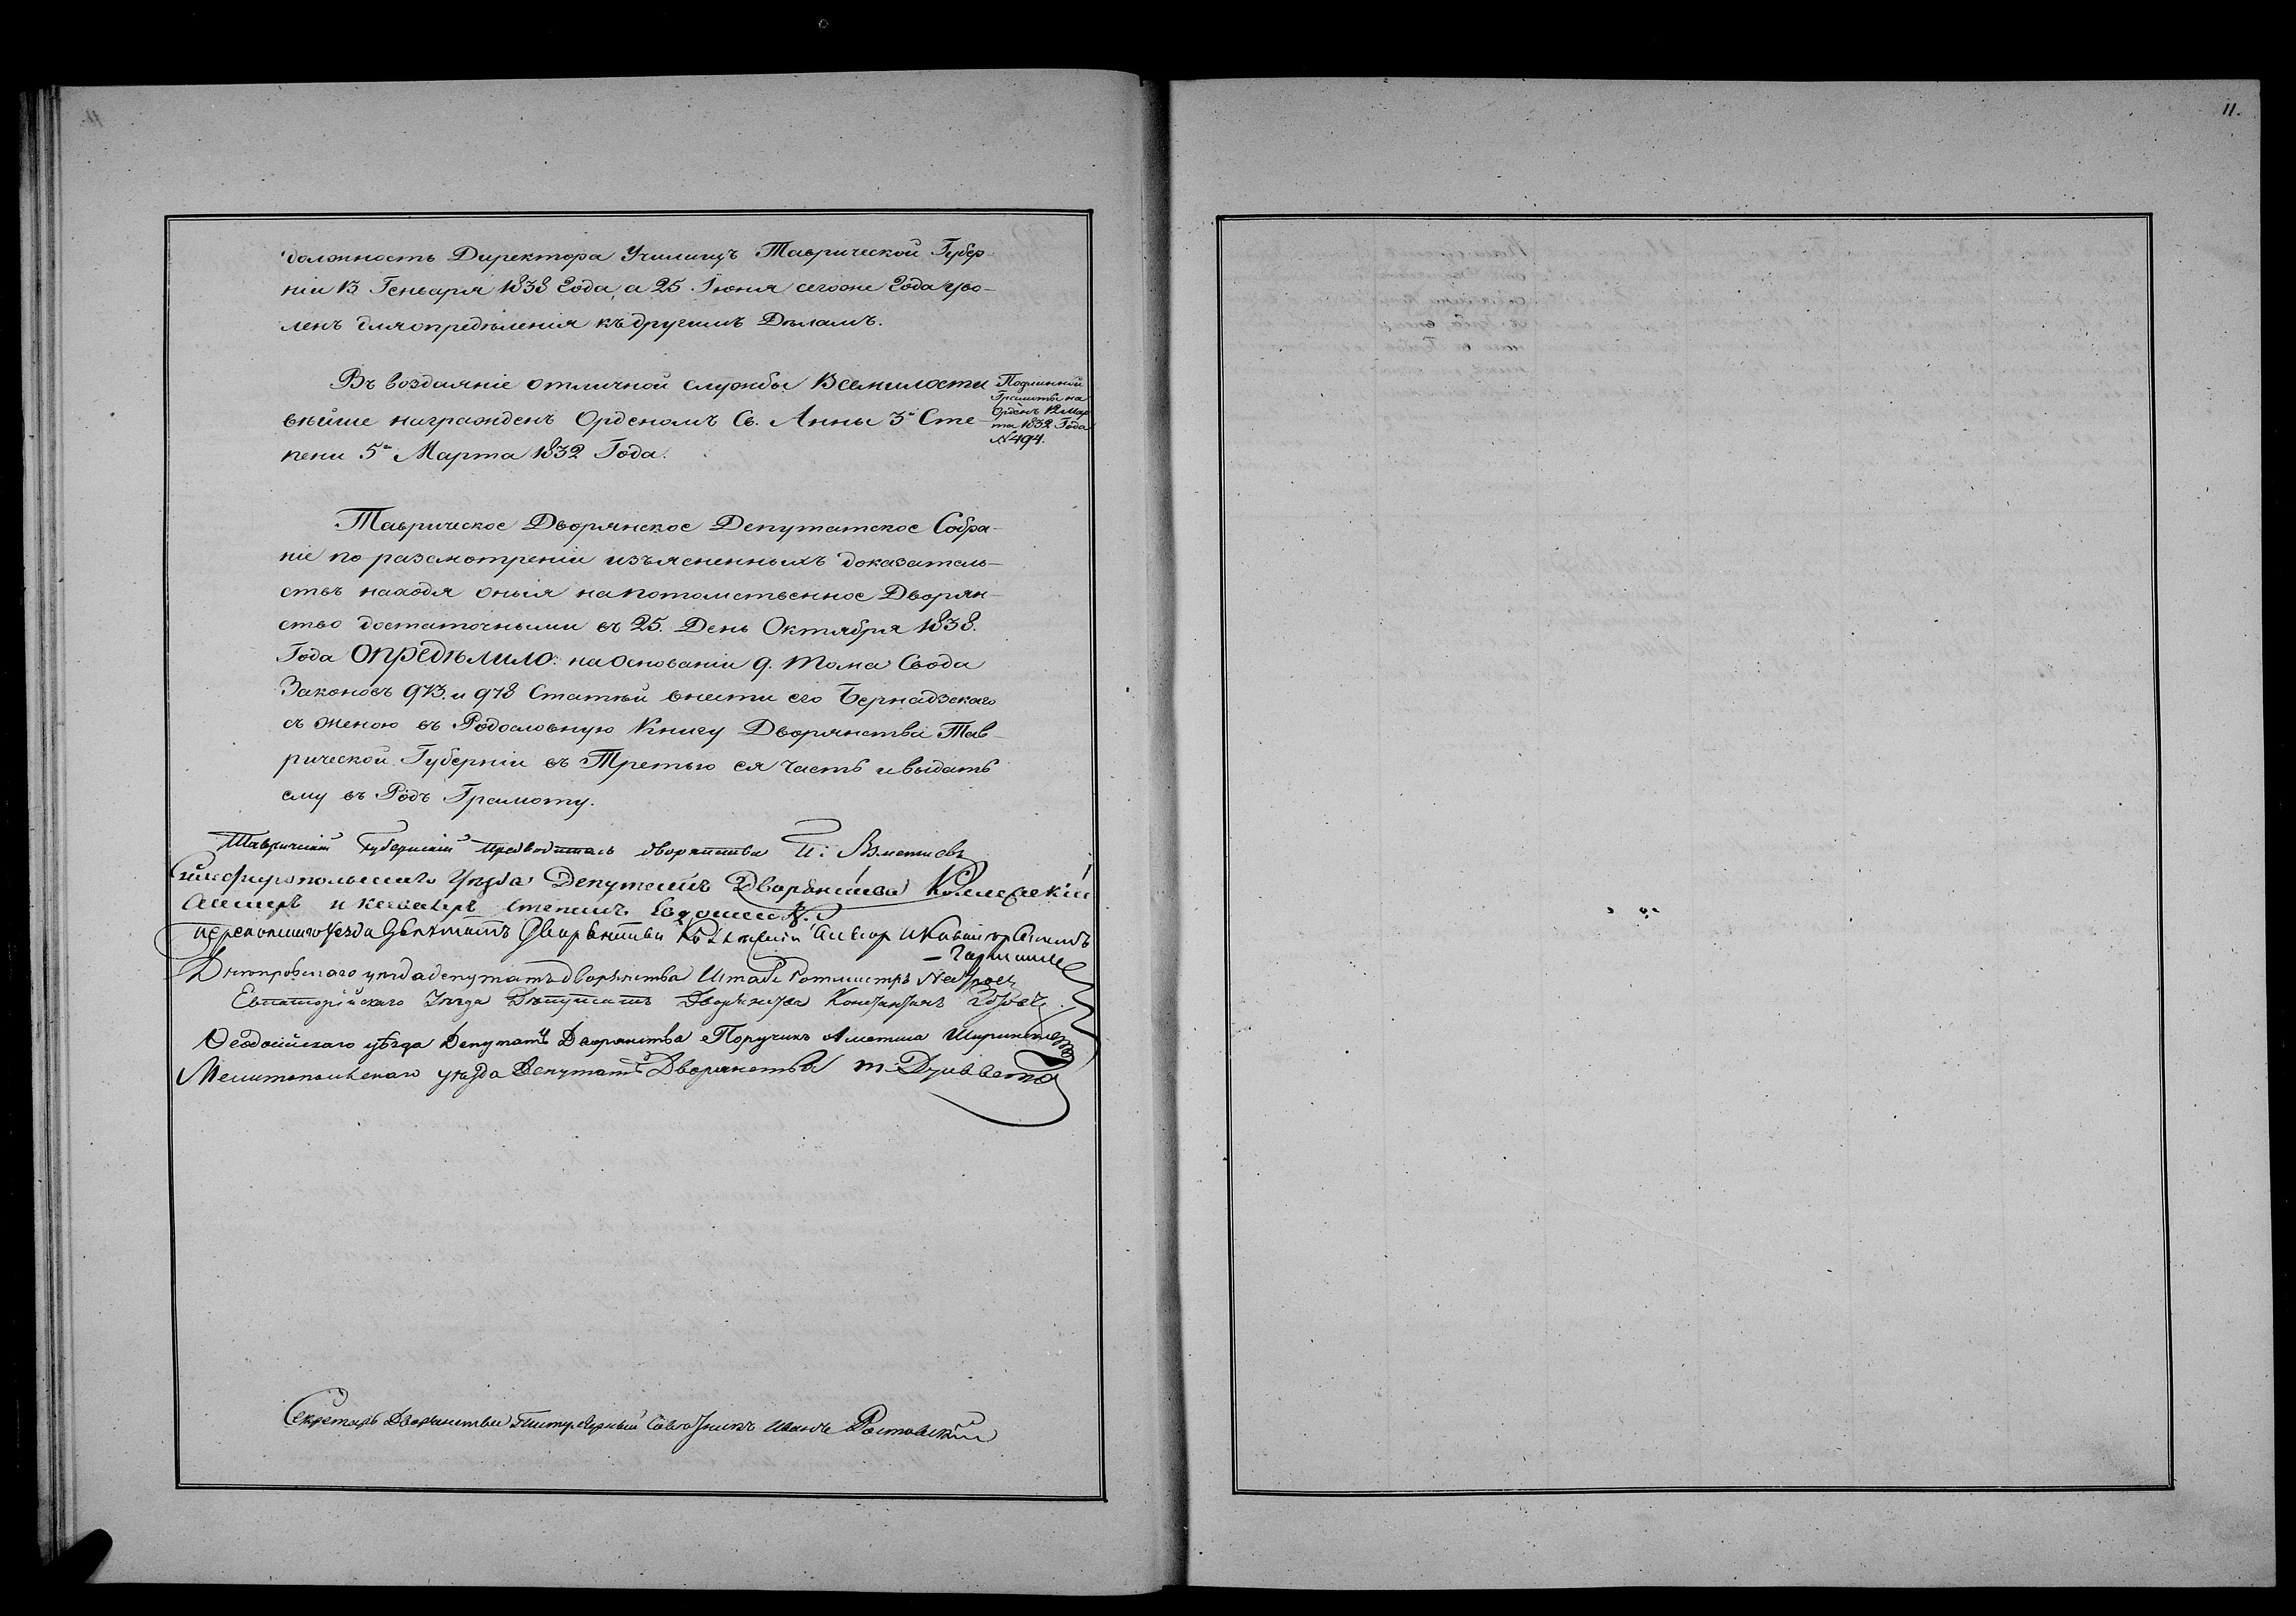 11.
должность Директора Училищъ Таврической Губер-
ніи 13 Генваря 1838 Года, а 25 Іюня сегоже Года уво-
ленъ для опредѣленія къ другимъ Дѣламъ.
Въ воздаяніе отличной службы Всемилости
вѣйше награжденъ Орденомъ Св. Анны 3й Сте-
пени 5го Марта 1832 Года.
Подлинной
Грамоты на
Орденъ 12 Мар
та 1832 Года
№ 494.
Таврическое Дворянское Депутатское Собра-
ніе по разсмотреніи изъясненныхъ доказатель-
ствъ находя оныя на потомственное Дворян-
ство достаточными въ 25. День Октября 1838.
Года опредѣлило: на основаніи 9. тома Свода
Законовъ 973. и 978 Статьй внести его Бернадзскаго
съ женою въ Родословную Книгу Дворянства Тав-
рической Губерніи въ Третью ея часть и выдать
ему въ Родъ Грамоту.
Таврическій Губернскій Предводитель дворянства
Симферопольскаго Уезда Депутатъ Дворянства Коллежскій
и кавалеръ Степанъ
Перекопскаго Уезда Депутатъ Дворянства
Днепровскаго уезда депутатъ дворянства Штабъ Ротмистръ
Евпаторійскаго Уезда Депутатъ Дворянства Константинъ
Ѳеодосійскаго уѣзда Депутатъ Дворянства Поручикъ Аметша Ширинскій
Мелитопольскаго уезда Депутатъ Дворянства
Секретарь Дворянства Титулярный Советникъ Иванъ Ростовскій